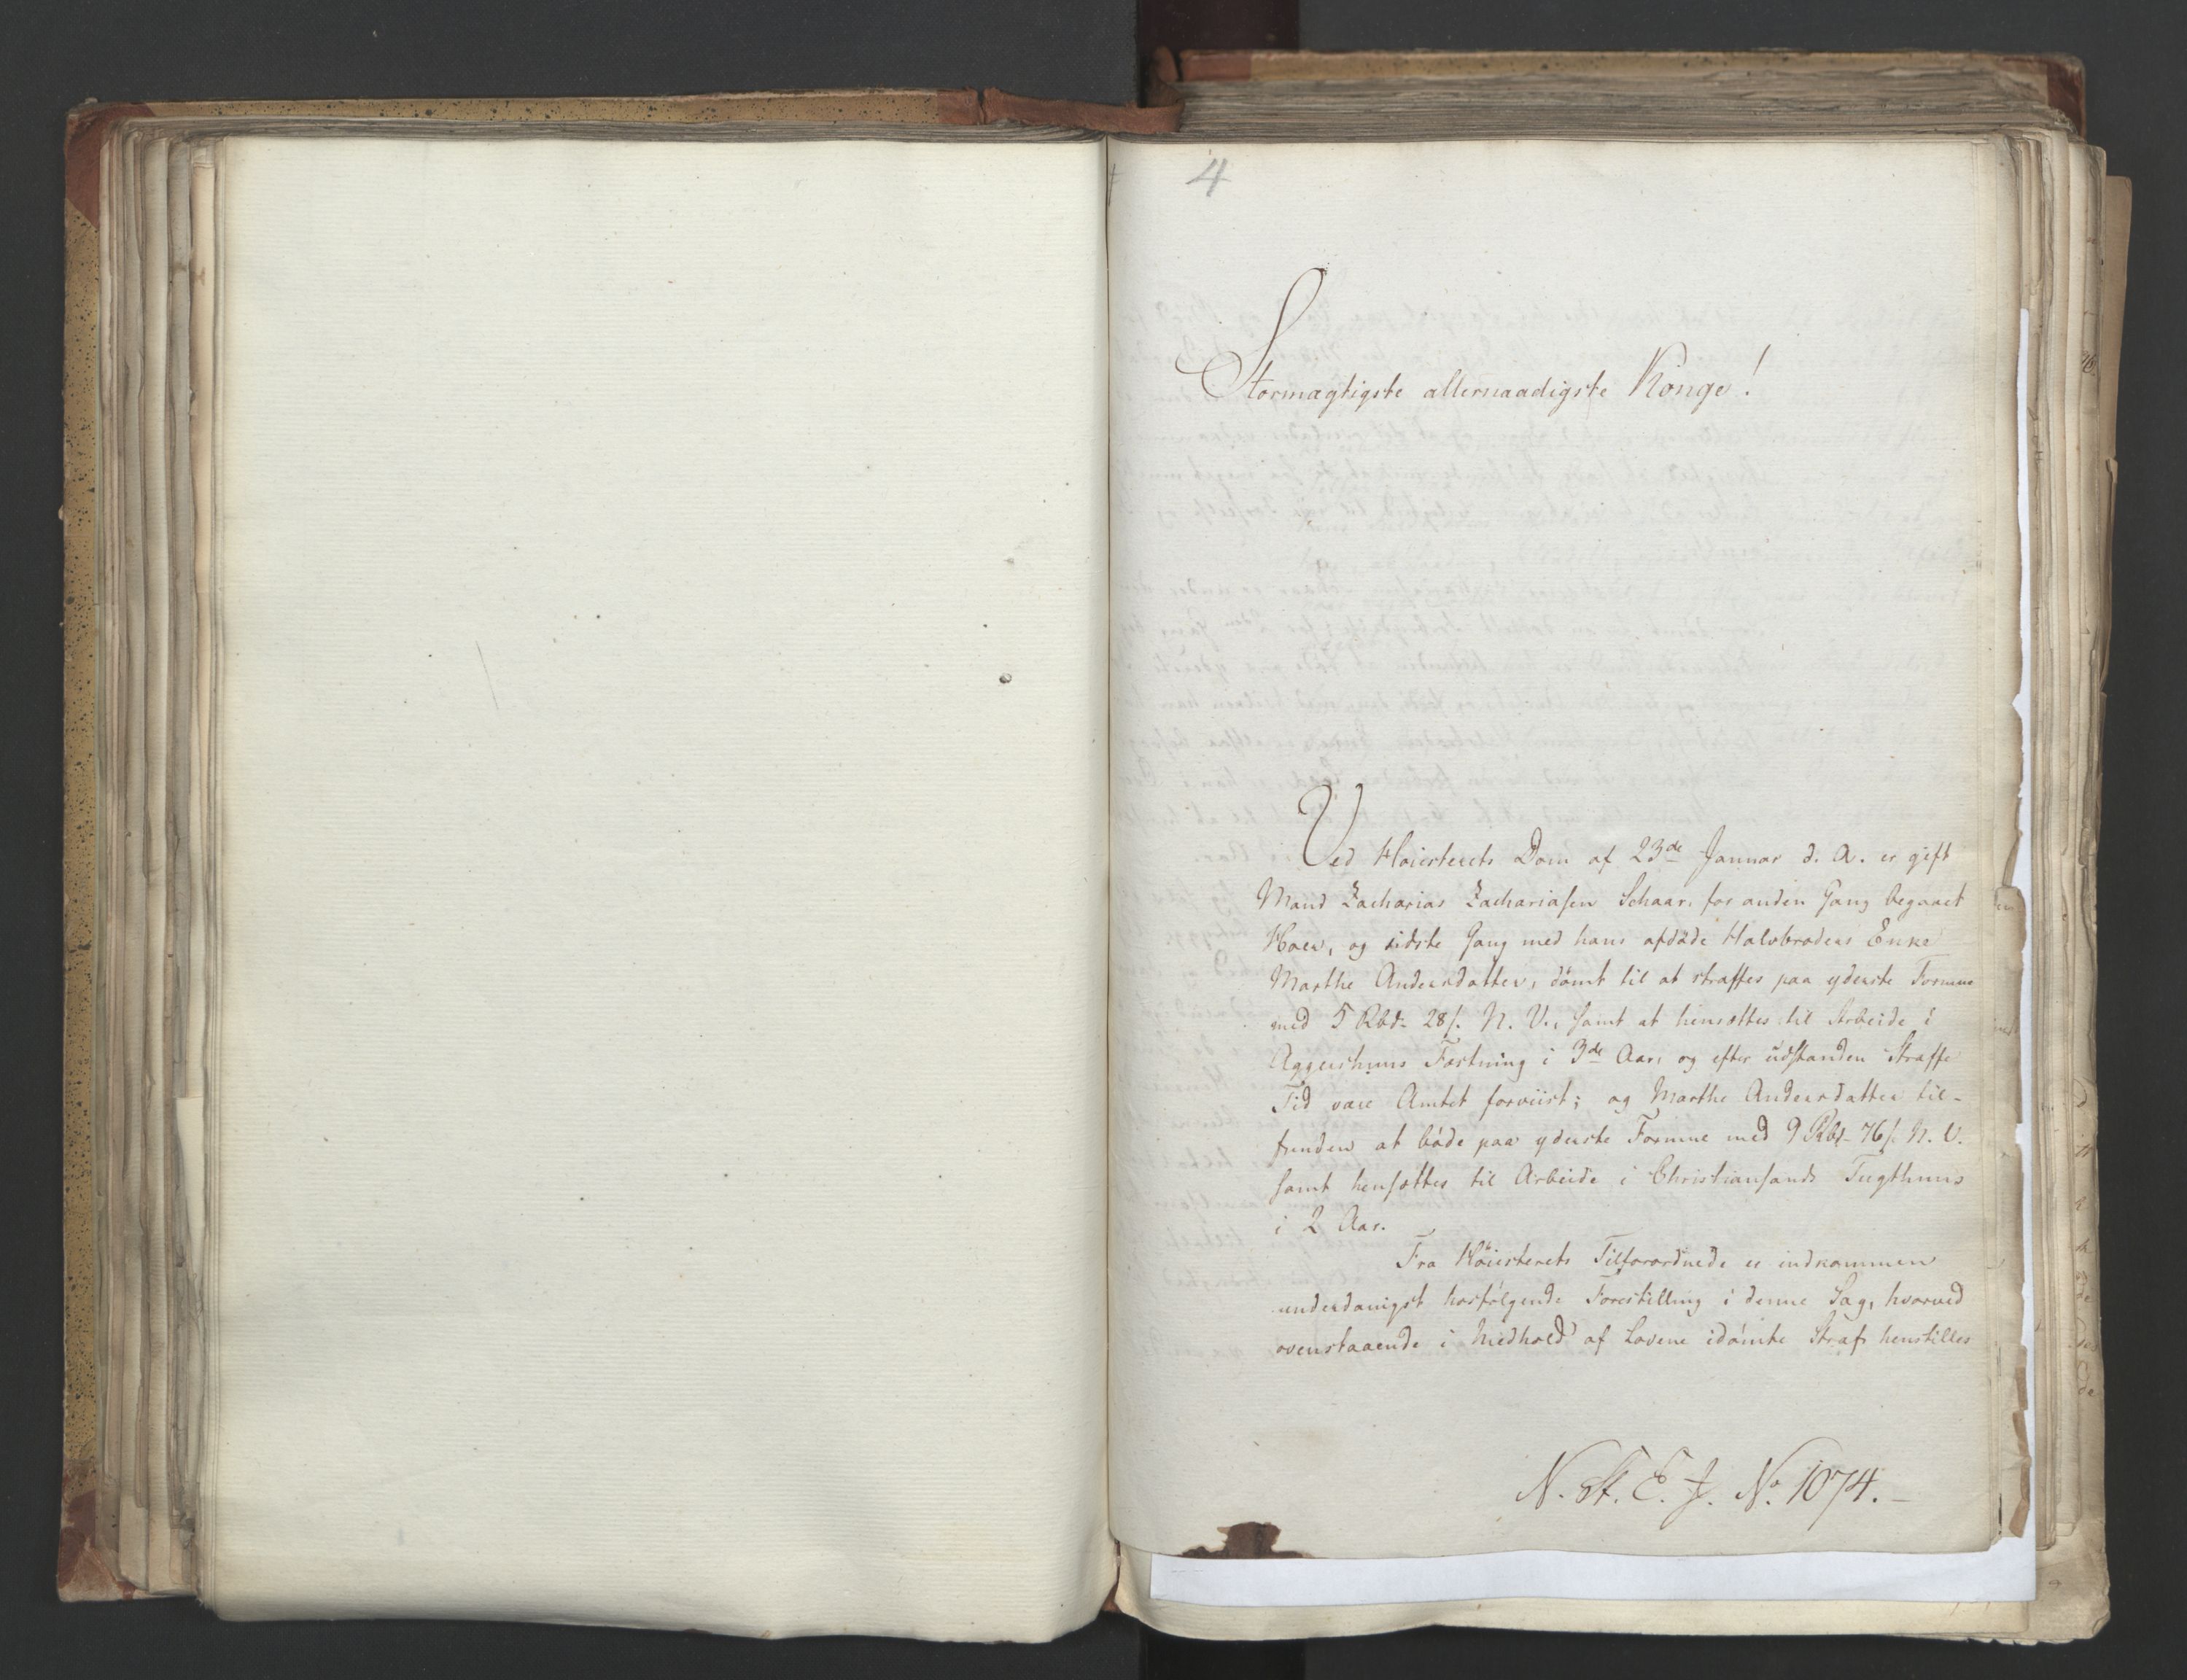 4
Stormagtigste allernaadigste Konge!
Ved Höiesterets Dom af 23de Januar d. A. er gift
Mand Zacharias Zachariasen Schaar, for anden Gang begaaet
Hoer, og sidste Gang med hans afdöde Halvbroders Enke
Marthe Andersdatter, dömt til at straffes paa yderste Formue
med 5 Rbd. 28 s. N. V., samt at hensættes til Arbeide i
Aggershuus Fæstning i 3de Aar, og efter udstanden Straffe
Tid være Amtet forviist; og Marthe Andersdatter til-
funden at böde paa yderste Formue med 9 Rbd. 76 s. N. V.
samt hensættes til Arbeide i Christiansands Tugthuus
i 2 Aar.
Fra Höiesterets Tilforordnede er indkommen
underdanigst hosfölgende Forestilling i denne Sag, hvorved
ovenstaaende i Medhold af Lovene idömte Straf henstilles
N. St. E. J. No. 1074.